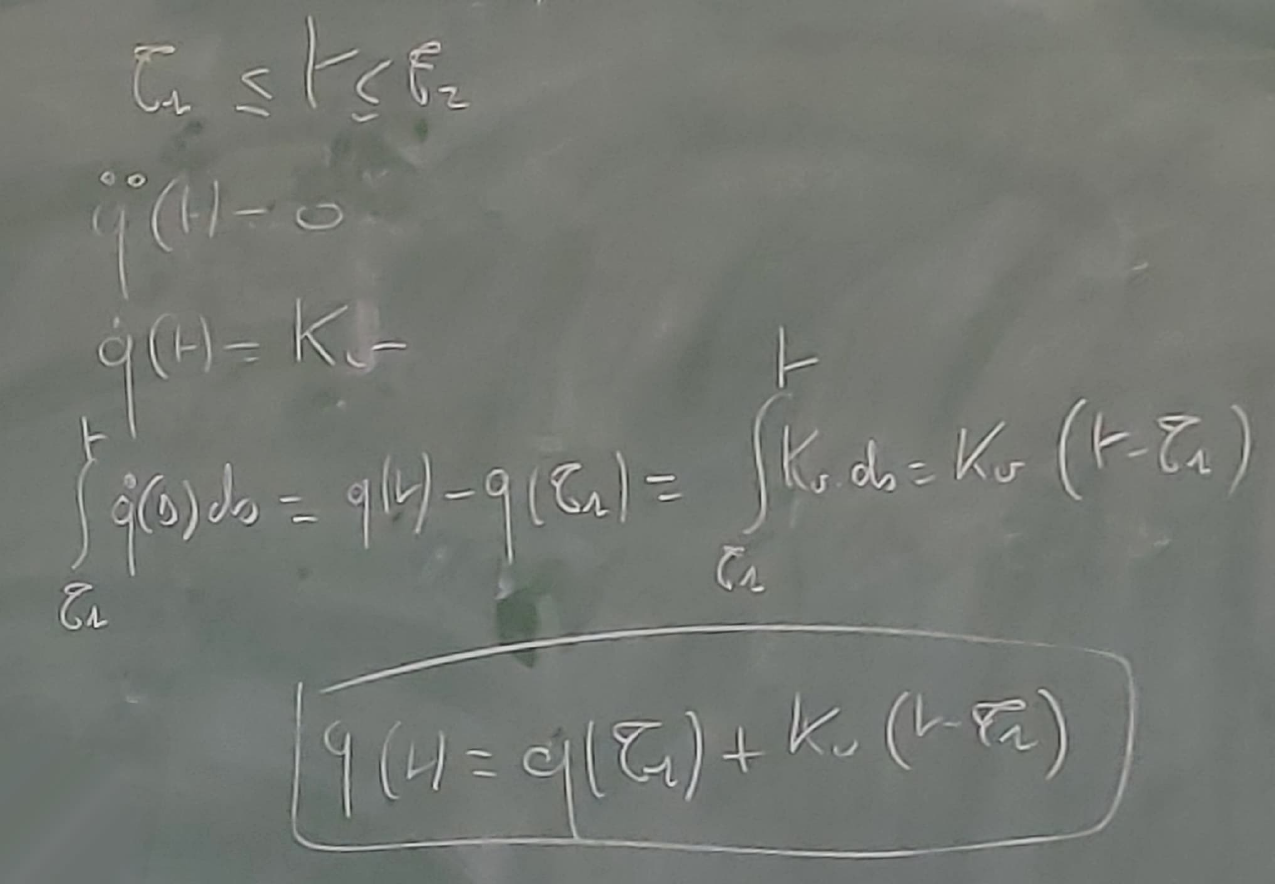 τ₁ ≤ t ≤ τ₂
q̈(t) = 0
q̇(t) = Kv
∫_{τ₁}^{t} q̇(s) ds = q(t) - q(τ₁) = ∫_{τ₁}^{t} Kv · ds = Kv (t - τ₁)
q(t) = q(τ₁) + Kv (t - τ₁)